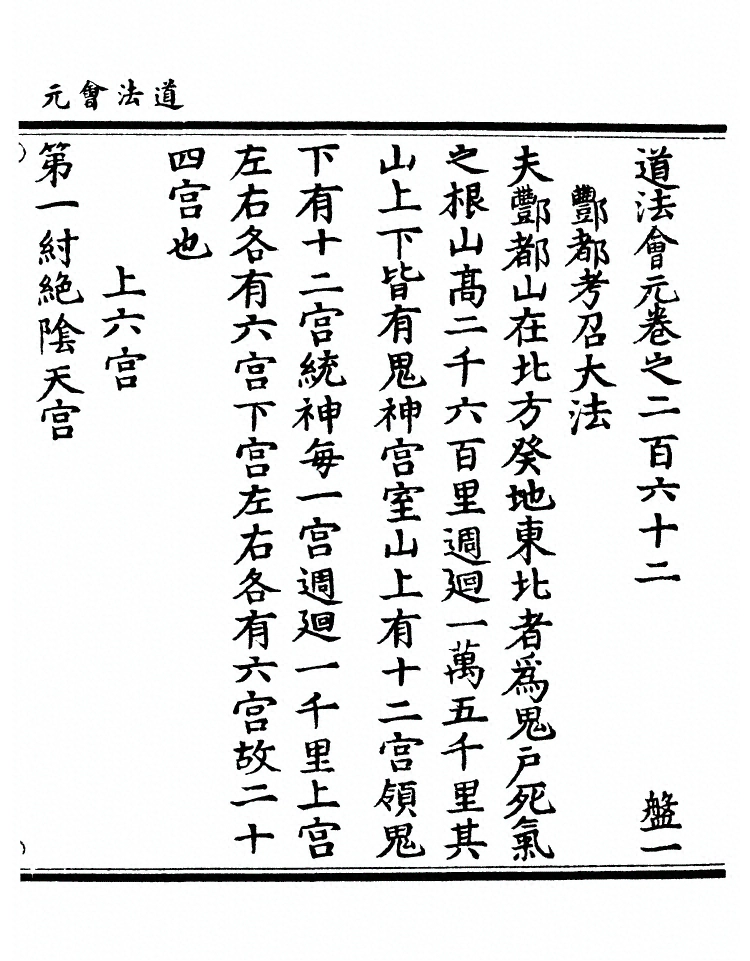 道法會元
道法會元卷之二百六十二 盤一
酆都考召大法
夫酆都山在北方癸地東北者爲鬼戶死氣
之根山高二千六百里週廻一萬五千里其
山上下皆有鬼神宮室山上有十二宮領鬼
下有十二宮統神每一宮週廻一千里上宮
左右各有六宮下宮左右各有六宮故二十
四宮也
上六宮
第一紂絕陰天宮